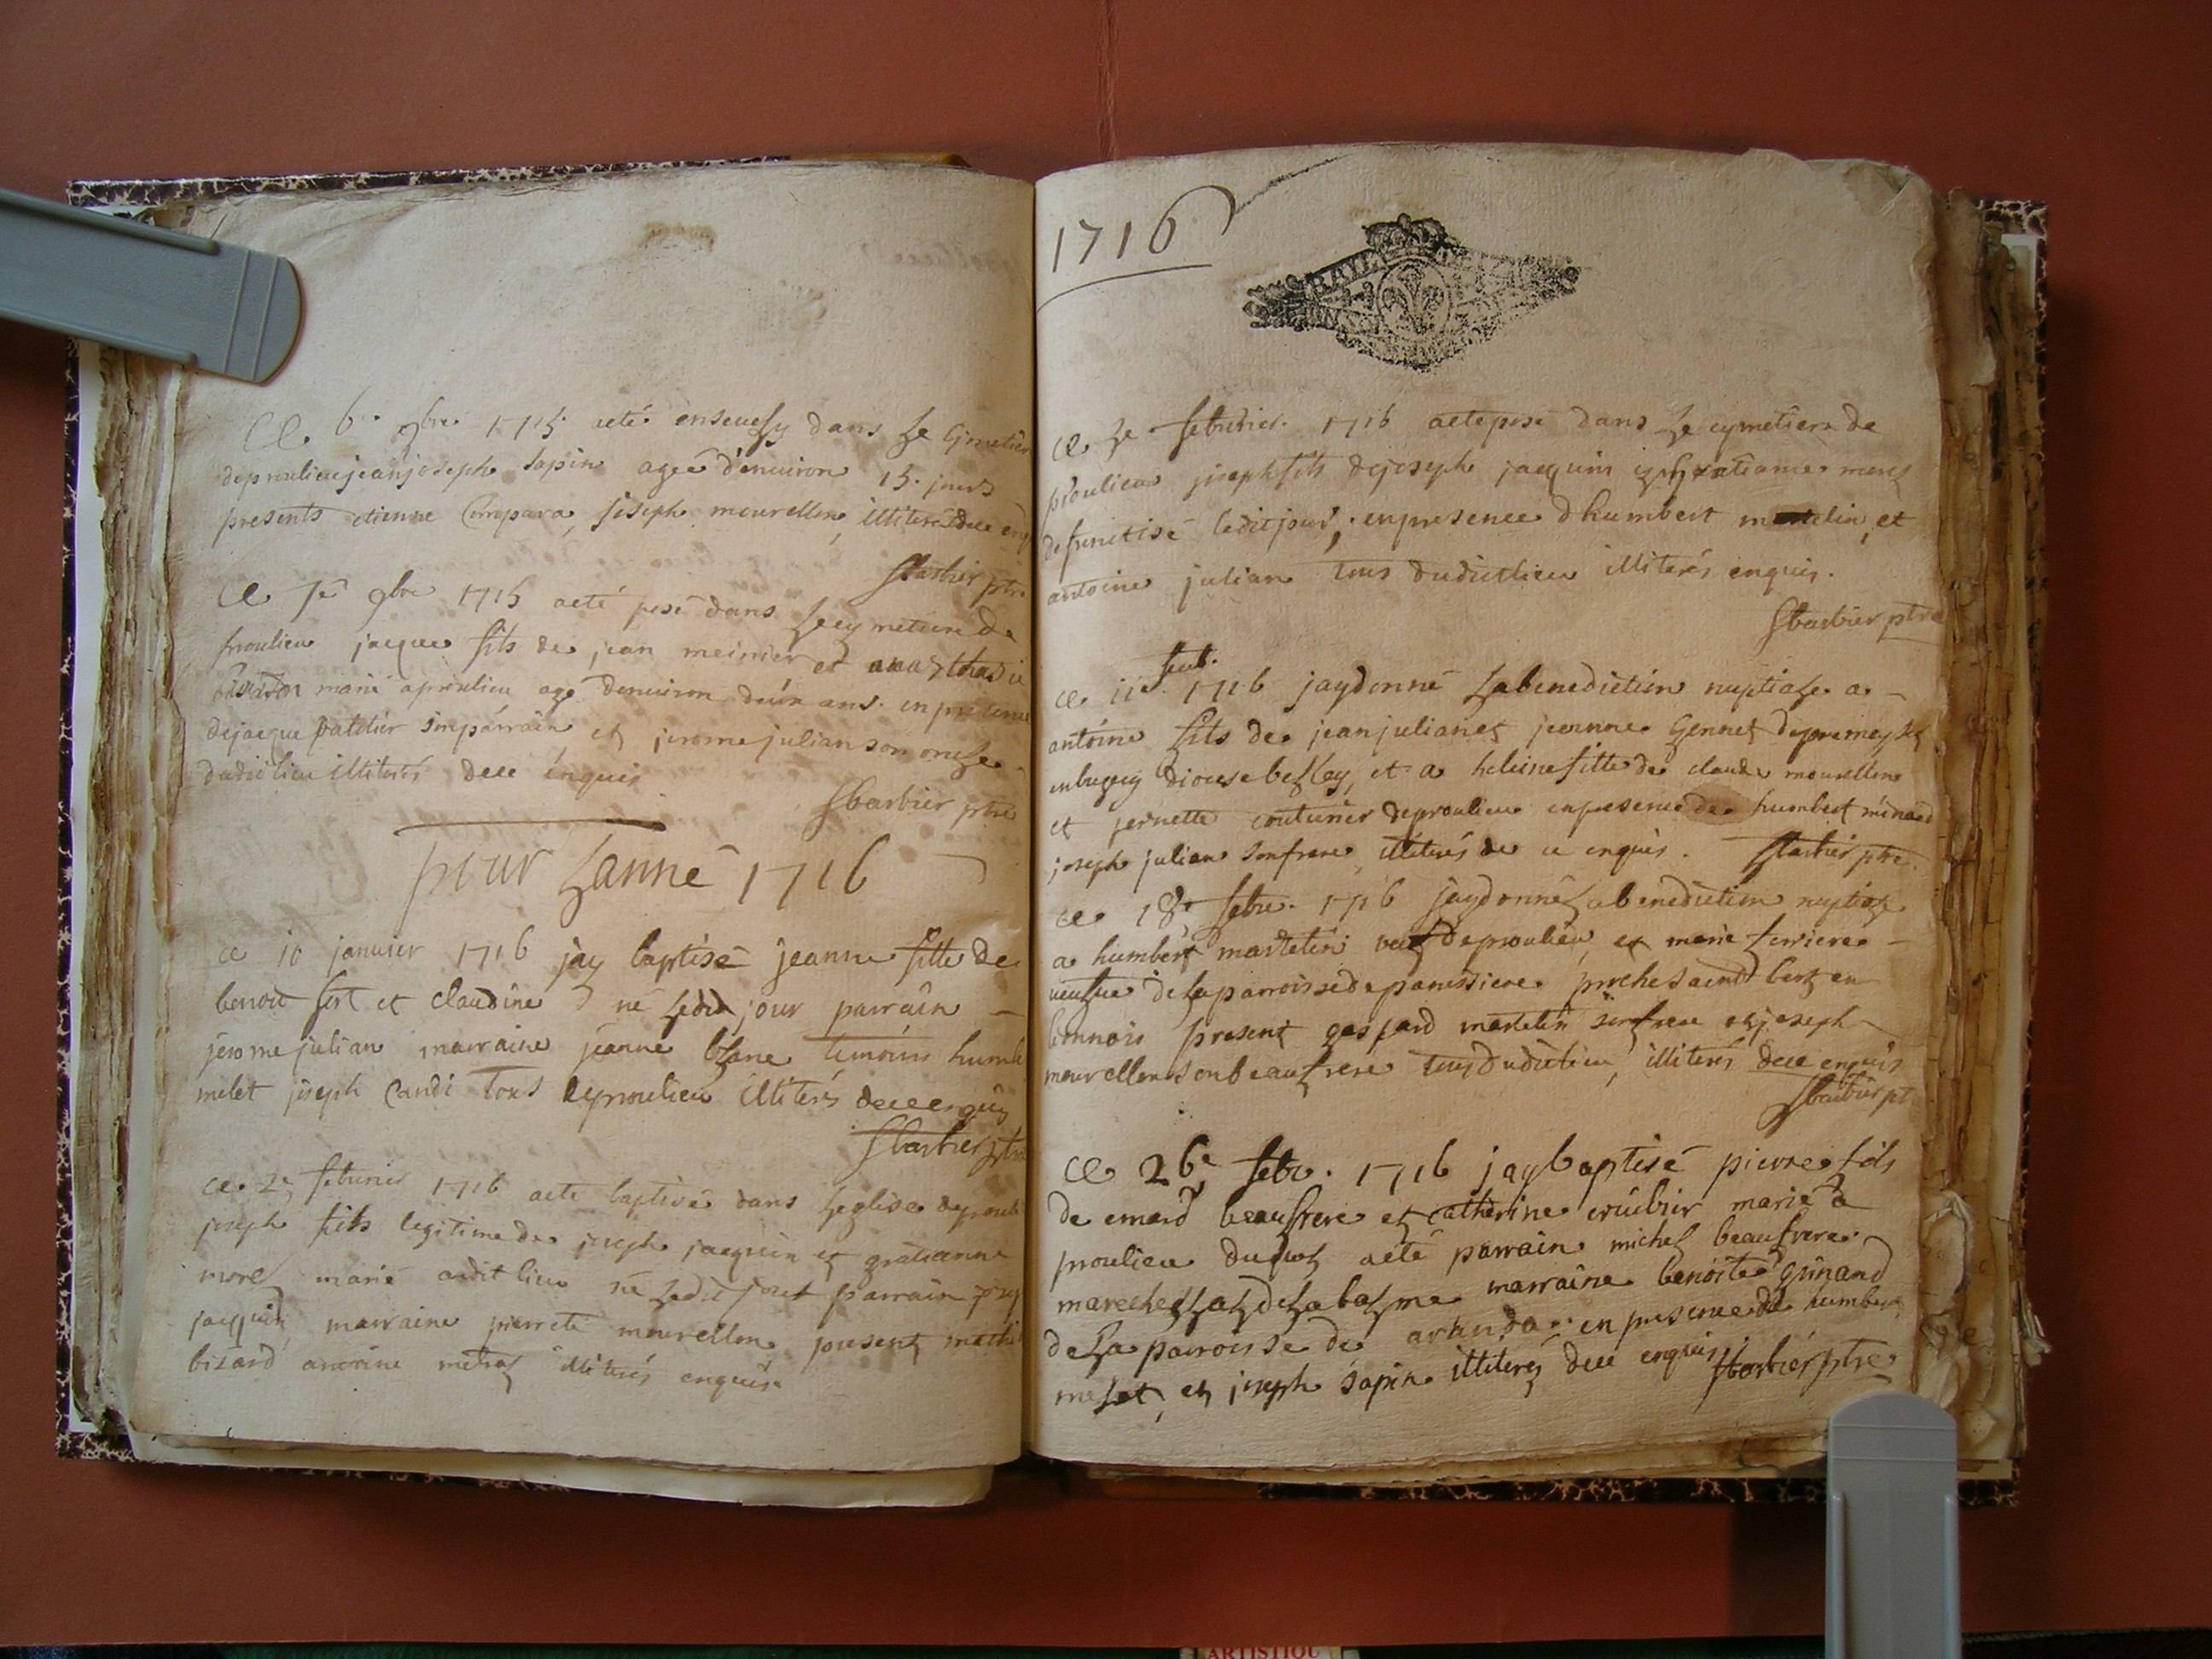 Ce 6e 9bre 1715 aeté enseuely dans le Cymetier
deproulieu jean joseph sapin ageé d'enuiron 15 jours
presents etienne Compara, joseph mourellon, illiterés dece enq
Sbarbier ptre
Ce 7e 9bre 1715 aeté posé dans le cymetiere de
proulieu jacque fils de jean meinier et
marié aproulieu agé denuiron deux ans en presence
dejacque patetier sonparrain et jerome julian son oncle
dudictlieu illiterés dece enquis
Sbarbier ptre
pour Lanné 1716
ce 10 januier 1716 jay baptisé jeanne fille de
benoit fort et claudine né ledit jour parrain
jerome julian marraine jeanne blanc temoins humb
milet joseph Candi tous deproulieu illiterés dece enquis
Sbarbier ptre
ce 2e februrier 1716 aeté baptisé dans leglise deproul
joseph fils legitime de joseph jacquin et gratianne
morel marié audit lieu né ledit jour parrain josep
jacquin marraine pierrete mourellon present math
bizard antoine metral illiterés enquis
1716
ce 4e februrier 1716 aeté posé dans le cymetiere de
proulieu joseph fils dejoseph jacquin et gratianne morel
ledit jour, enpresence dhumbert martelin, et
antoine julian tous dudictlieu illiterés enquis.
Sbarbier ptre
feub.
ce 11e 1716 jaydonné labenediction nuptiale a
antoine fils de jean julian et jeanne Gennet
enbugey diocese belley, et a heleine fille de claude mourellon
et pernette couturier deproulieu enpresence de humbert minard
joseph julian sonfrere, illiterés de ce enquis. Sbarbier ptre
ce 18e febu. 1716 jaydonné labenediction nuptiale
a humbert martelin deproulieu, et marie ferriere
ueufue delaparroisse de panissiere proche saint en
lionnois present gaspard martelin sonfrere et joseph
mourellon sonbeaufrere tous dudictlieu, illiterés dece enquis
Sbarbier pt
Ce 26e febu. 1716 jaybaptisé pierre fils
de emard beaufrere et catherine cruibier marié a
proulieu duquel aeté parrain michel beaufrere
marechal delabalme marraine benoite guinand
dela parroisse de aranda en presence de humbert
melet, et joseph sapin illiterés dece enquis Sbarbier ptre